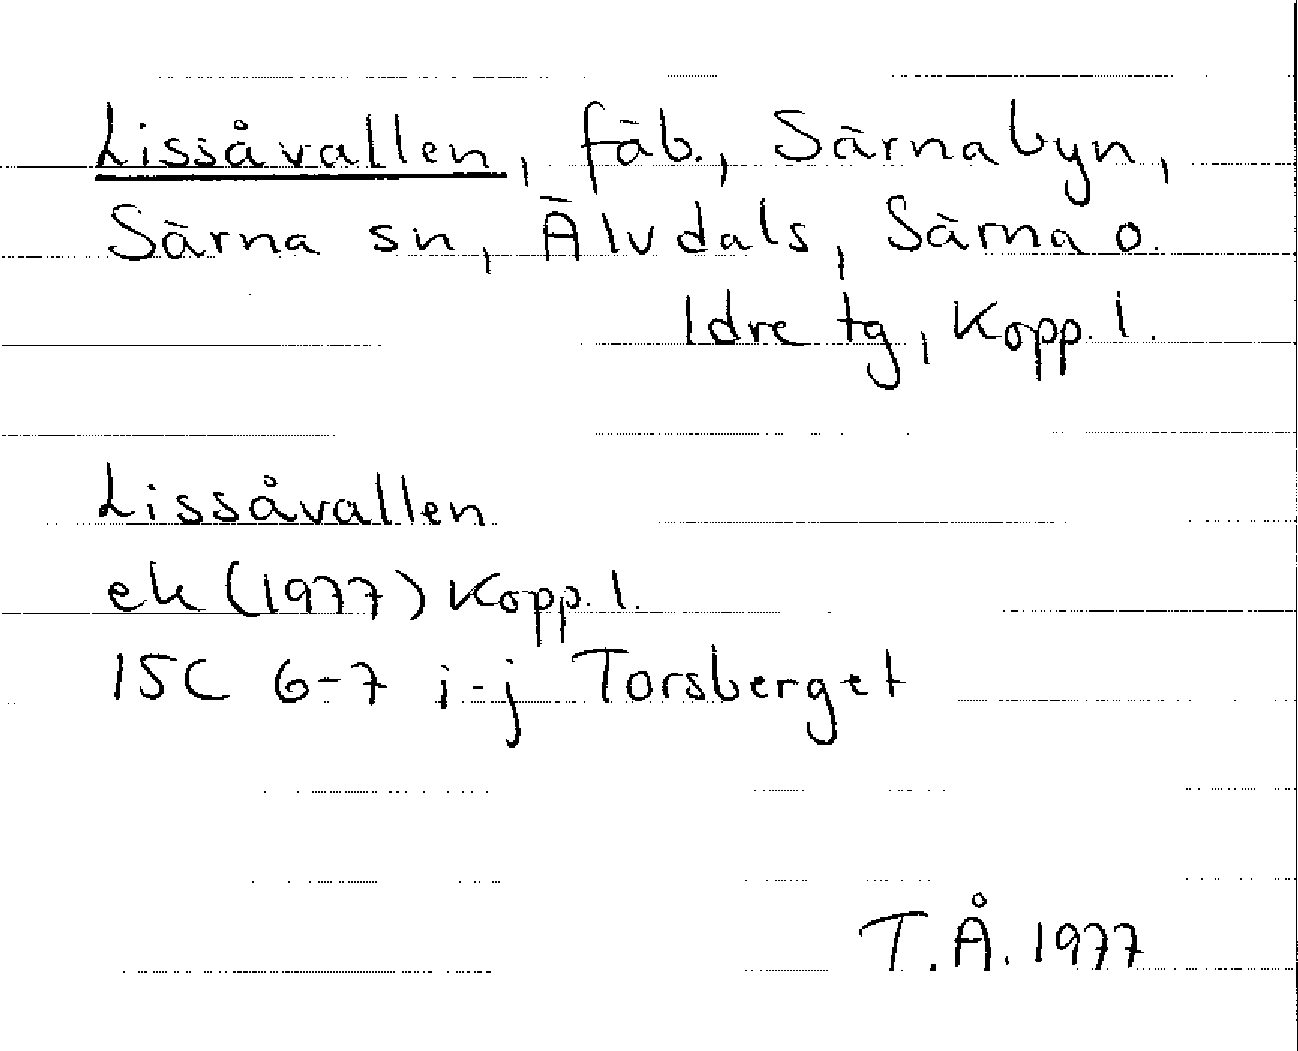 Lissåvallen, fäb., Särnabyn,
Särna sn, Älvdals, Särna o.
Idre tg, Kopp. l.
Lissåvallen
ek (1977) Kopp. l.
15C 6-7 i-j Torsberget
T.Å. 1977